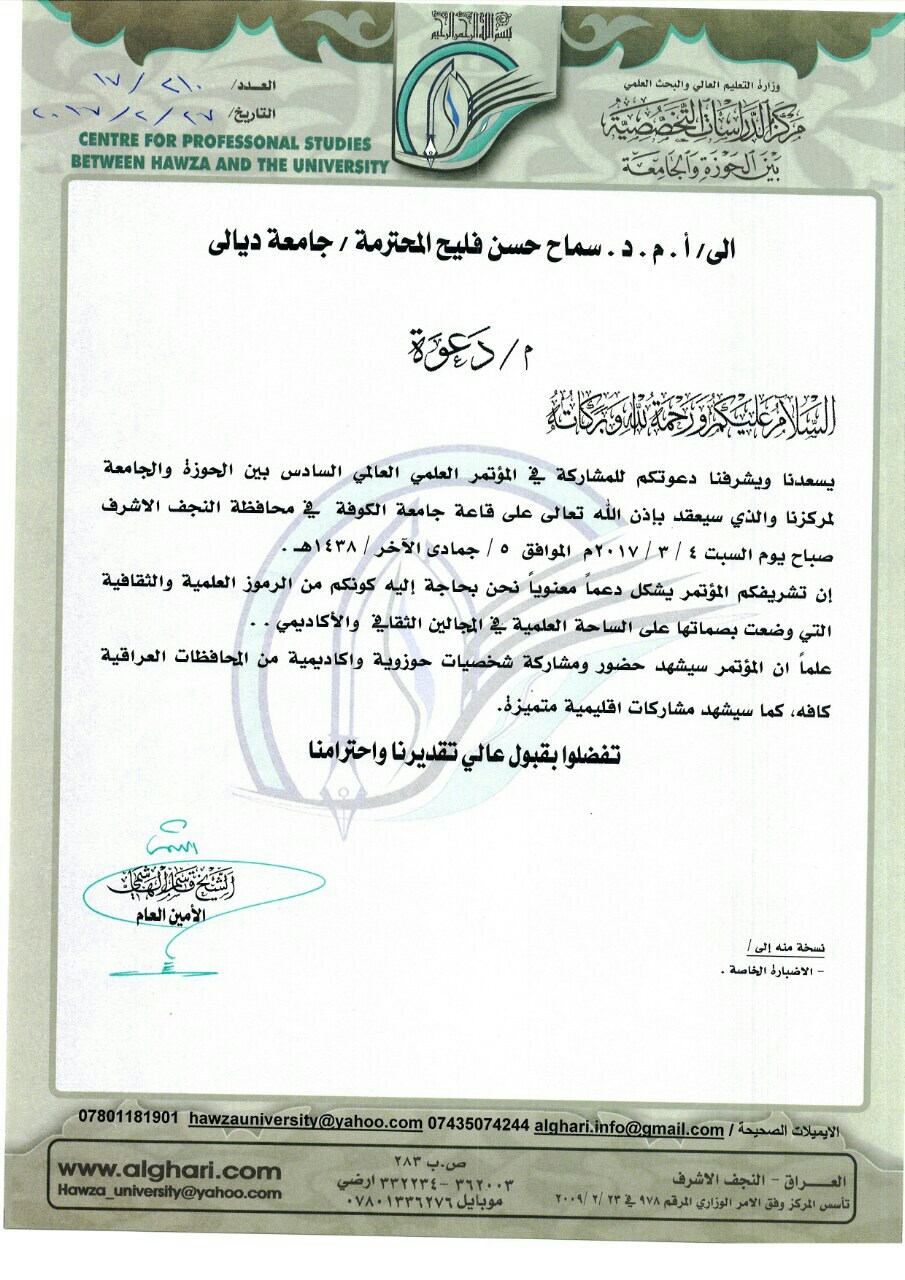 بسم الله الرحمن الرحيم
وزارة التعليم العالي والبحث العلمي
مركز الدراسات التخصصية
بين الحوزة والجامعة
العـدد/ ٢١٠ / ١٧
التاريخ/ ٢٧ / ٢ / ٢٠١٧
CENTRE FOR PROFESSONAL STUDIES
BETWEEN HAWZA AND THE UNIVERSITY
الى/ أ . م . د . سماح حسن فليح المحترمة / جامعة ديالى
م / دعوة
السلام عليكم ورحمة الله وبركاته
يسعدنا ويشرفنا دعوتكم للمشاركة في المؤتمر العلمي العالمي السادس بين الحوزة والجامعة
لمركزنا والذي سيعقد بإذن الله تعالى على قاعة جامعة الكوفة في محافظة النجف الاشرف
صباح يوم السبت ٤ / ٣ / ٢٠١٧م الموافق ٥ / جمادى الآخر / ١٤٣٨هـ .
إن تشريفكم المؤتمر يشكل دعماً معنوياً نحن بحاجة إليه كونكم من الرموز العلمية والثقافية
التي وضعت بصماتها على الساحة العلمية في المجالين الثقافي والأكاديمي . .
علماً ان المؤتمر سيشهد حضور ومشاركة شخصيات حوزوية واكاديمية من المحافظات العراقية
كافه، كما سيشهد مشاركات اقليمية متميزة.
تفضلوا بقبول عالي تقديرنا واحترامنا
الشيخ قاسم الهاشمي
الأمين العام
نسخة منه إلى /
- الاضبارة الخاصة .
الايميلات الصحيحة / alghari.info@gmail.com 07435074244 hawzauniversity@yahoo.com 07801181901
العـراق - النجف الاشرف
تأسس المركز وفق الامر الوزاري المرقم ٩٧٨ في ٢٣ /٢ /٢٠٠٩
ص.ب ٢٨٣
٣٦٢٠٠٣ - ٣٣٢٢٣٤ ارضي
موبايل ٠٧٨٠١٣٣٦٢٧٦
www.alghari.com
Hawza_university@yahoo.com